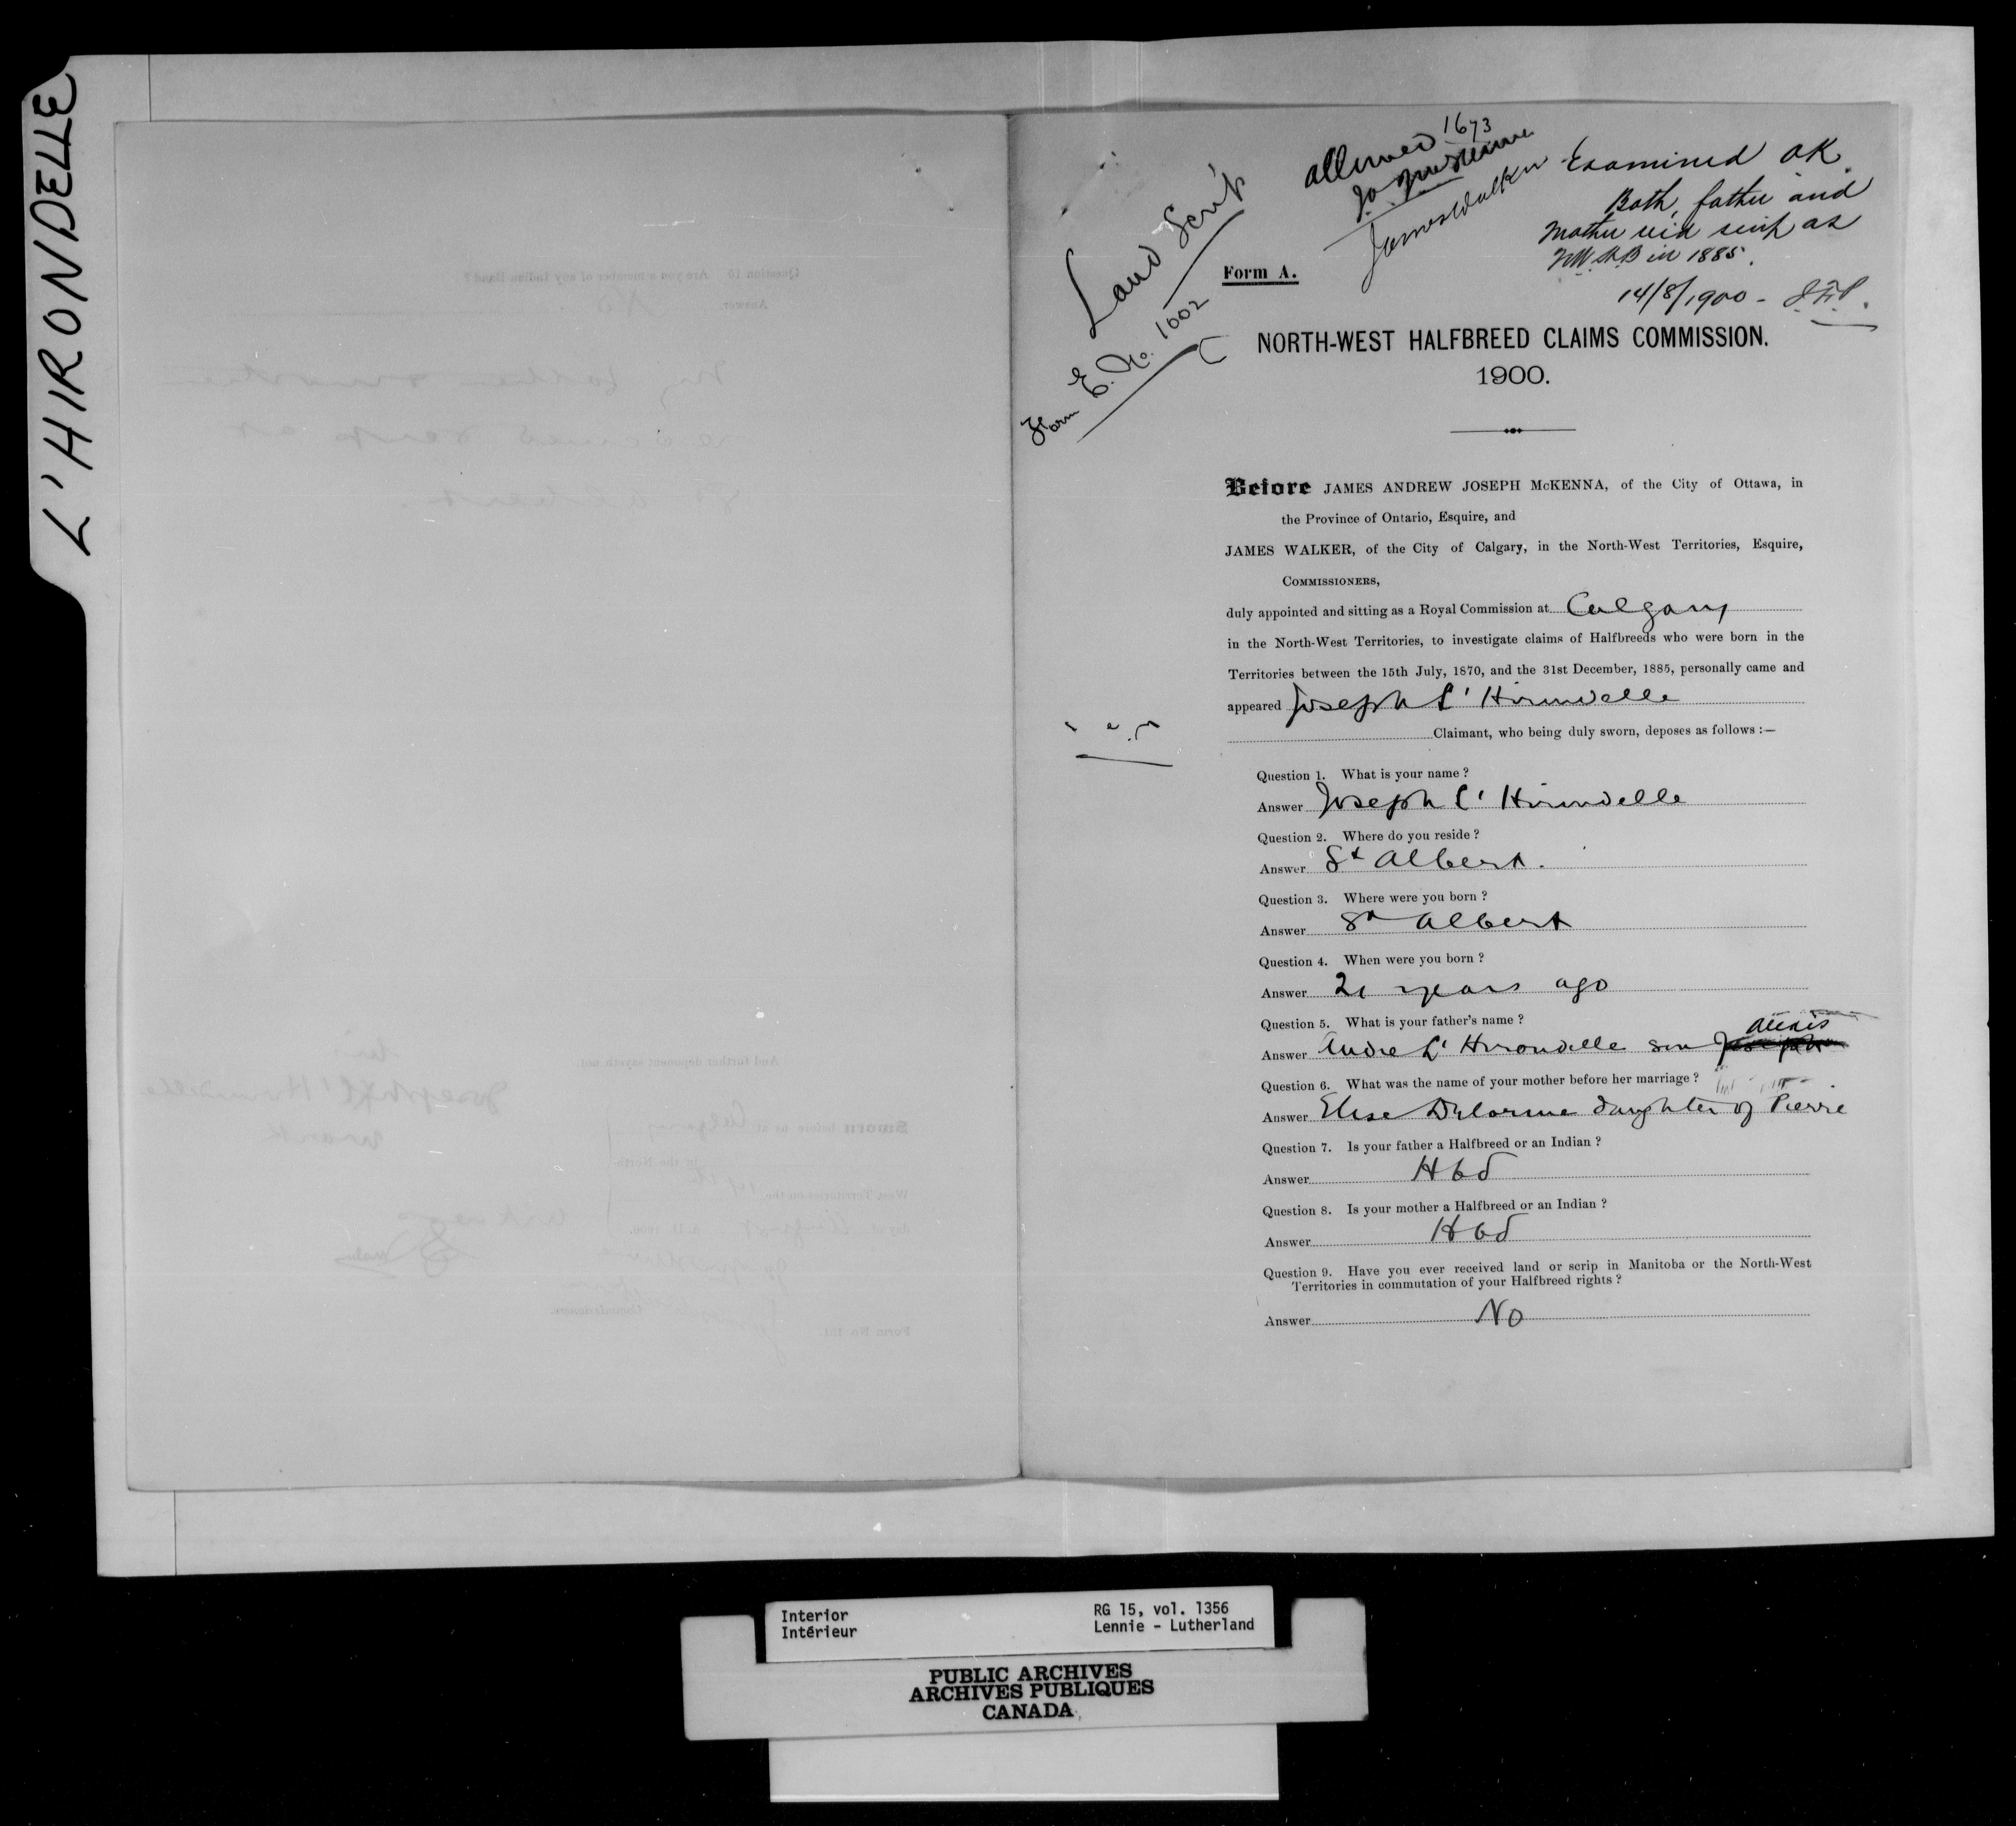 L'HIRONDELLE
Land Scrip
Form E. No. 1002
1673
allowed
J.A. J. McKenna
James Walker
Examined OK
Both, father and
Mother rec'd scrip as
N.W.H.B in 1885.
14/8/1900 -
Form A.
NORTH-WEST HALFBREED CLAIMS COMMISSION.
1900.
Before JAMES ANDREW JOSEPH McKENNA, of the City of Ottawa, in
the Province of Ontario, Esquire, and
JAMES WALKER, of the City of Calgary, in the North-West Territories, Esquire,
COMMISSIONERS,
duly appointed and sitting as a Royal Commission at Calgary
in the North-West Territories, to investigate claims of Halfbreeds who were born in the
Territories between the 15th July, 1870, and the 31st December, 1885, personally came and
appeared Joseph L' Hirondelle
Claimant, who being duly sworn, deposes as follows :—
Question 1. What is your name ?
Answer Joseph L' Hirondelle
Question 2. Where do you reside ?
Answer St Albert.
Question 3. Where were you born ?
Answer St Albert
Question 4. When were you born ?
Answer 21 years ago
Question 5. What is your father's name ?
Alexis
Answer Andre L' Hirondelle son Joseph
Question 6. What was the name of your mother before her marriage ?
Answer Elise Delorme daughter of Pierre
Question 7. Is your father a Halfbreed or an Indian ?
Answer Hbd
Question 8. Is your mother a Halfbreed or an Indian ?
Answer Hbd
Question 9. Have you ever received land or scrip in Manitoba or the North-West
Territories in commutation of your Halfbreed rights ?
Answer No
Interior
Intérieur
RG 15, vol. 1356
Lennie - Lutherland
PUBLIC ARCHIVES
ARCHIVES PUBLIQUES
CANADA